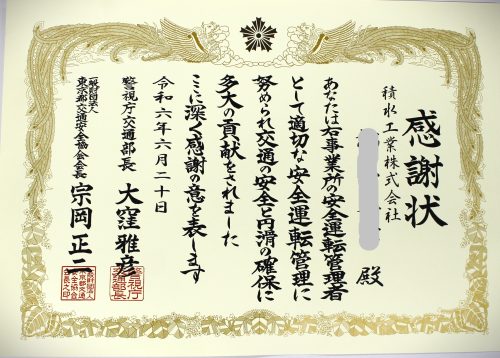 感謝状
積水工業株式会社
殿
あなたは右事業所の安全運転管理者
として適切な安全運転管理に
努められ交通の安全と円滑の確保に
多大の貢献をされました
ここに深く感謝の意を表します
令和六年六月二十日
警視庁交通部長 大窪雅彦
一般財団法人
東京都交通安全協会会長 宗岡正二
警視庁
交通部長